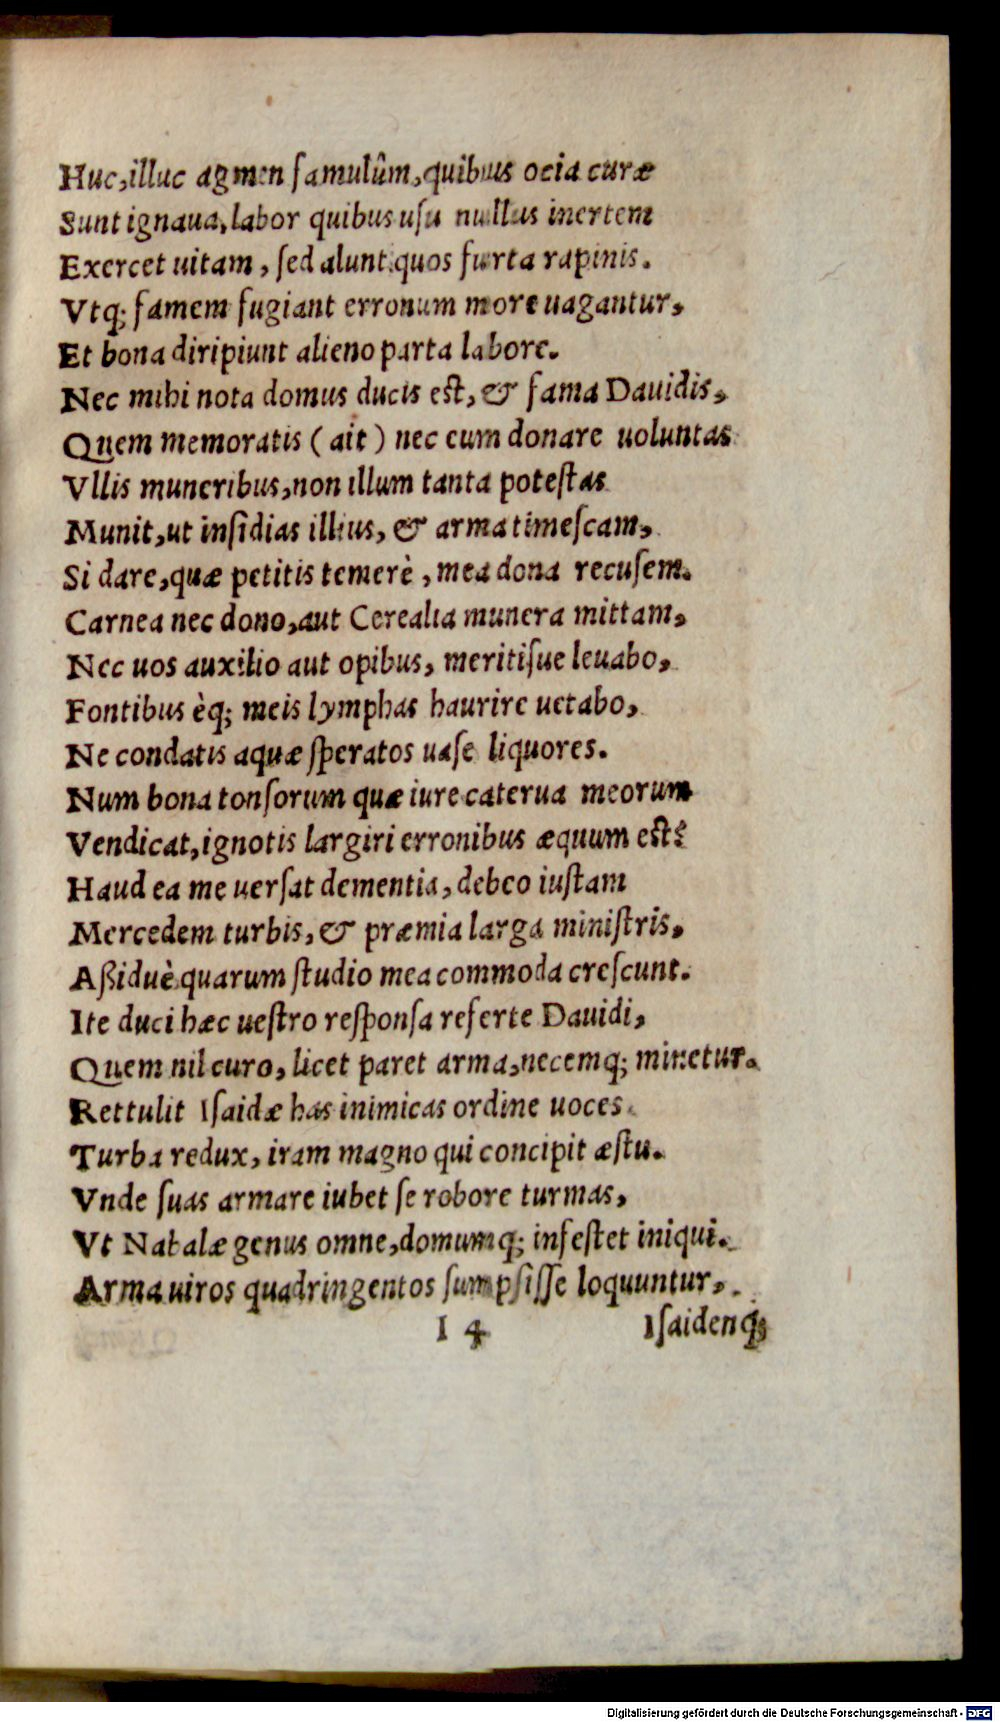 Huc,illuc agmen famulûm,quibus ocia curæ
Sunt ignaua,labor quibus usu nullus inertem
Exercet uitam, sed alunt quos furta rapinis.
Vtq; famem fugiant erronum more uagantur,
Et bona diripiunt alieno parta labore.
Nec mihi nota domus ducis est, & fama Dauidis,
Quem memoratis ( ait ) nec eum donare uoluntas
Vllis muneribus,non illum tanta potestas
Munit,ut insidias illius, & arma timescam,
Si dare,quæ petitis temerè, mea dona recusem.
Carnea nec dono,aut Cerealia munera mittam,
Nec uos auxilio aut opibus, meritisue leuabo,
Fontibus èq; meis lymphas haurire uetabo,
Ne condatis aquæ speratos uase liquores.
Num bona tonsorum quæ iure caterua meorum
Vendicat,ignotis largiri erronibus æquum est?
Haud ea me uersat dementia, debeo iustam
Mercedem turbis, & præmia larga ministris,
Aßiduè quarum studio mea commoda crescunt.
Ite duci hæc uestro responsa referte Dauidi,
Quem nil curo, licet paret arma,necemq; minetur.
Rettulit Isaidæ has inimicas ordine uoces
Turba redux, iram magno qui concipit æstu.
Vnde suas armare iubet se robore turmas,
Vt Nabalæ genus omne,domumq; infestet iniqui.
Arma uiros quadringentos sumpsisse loquuntur,
I 4 Isaidenq;
Digitalisierung gefördert durch die Deutsche Forschungsgemeinschaft - DFG